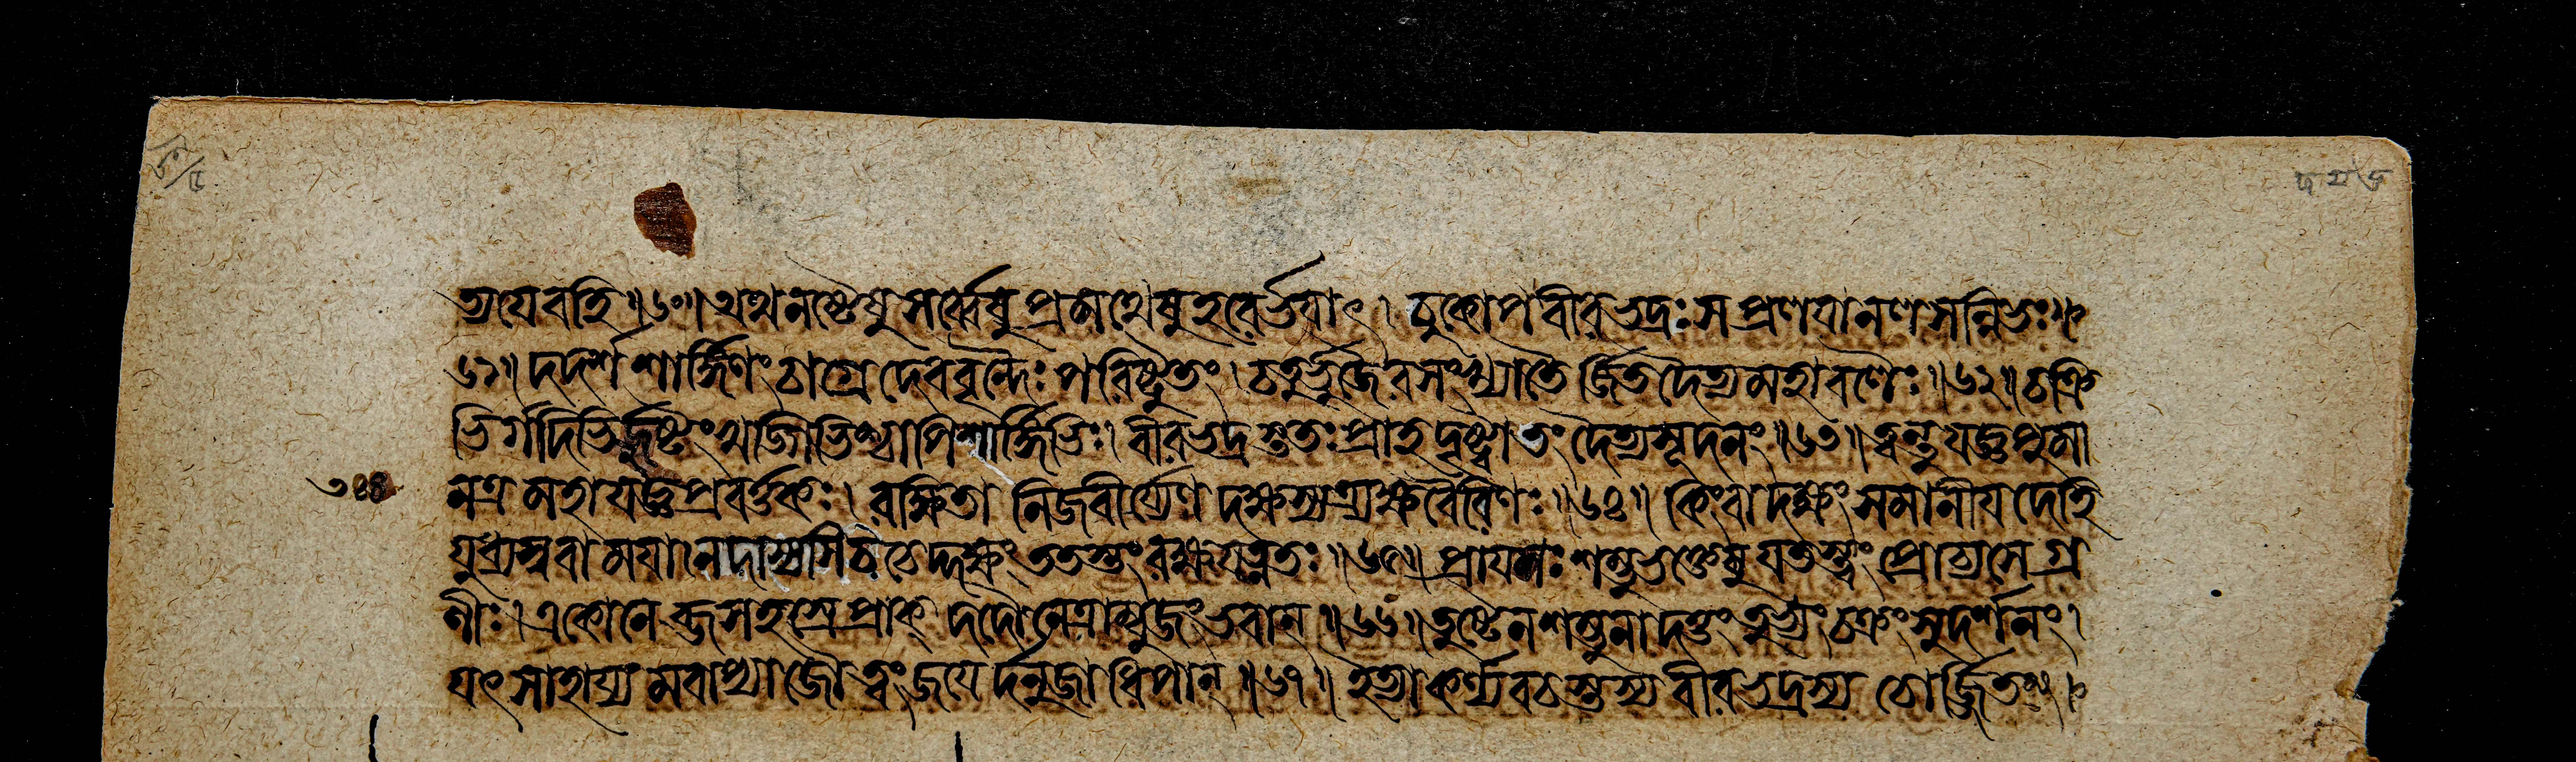 ত্যযেবহি ॥৬০॥ অথনষ্টেষুসর্ব্বেষুপ্রমথেষুহরের্ভযাৎ । চুকোপবীরভদ্রঃসপ্রলযানলসন্নিভঃ॥
৬১॥ দদর্শশার্ঙ্গিণংচাগ্রেদেববৃন্দৈঃপরিষ্টুতং । চতুর্ভুজৈরসংখ্যাতৈর্জিতদৈত্যমহাবলৈঃ ॥৬২॥ চক্রি
ভির্গদিভির্জুষ্টংখড্গিভিশ্চাপিশার্ঙ্গিভিঃ । বীরভদ্রস্ততঃপ্রাহদৃষ্ট্বাতংদৈত্যসূদনং ॥৬৩॥ ত্বন্তুযজ্ঞপুমা
নত্রমহাযজ্ঞপ্রবর্ত্তকঃ । রক্ষিতানিজবীর্য্যেণদক্ষস্যত্র্যক্ষবৈরিণঃ ॥৬৪॥ কিংবাদক্ষংসমানীযদেহি
যুধ্যস্ববামযানদাস্যসিচচেদ্দক্ষংততস্তংরক্ষযত্নতঃ ॥৬৫॥ প্রাযশঃশম্ভুভক্তেষুযতস্ত্বংপ্রোচ্যসেগ্র
ণীঃ । একোনেব্জসহস্রেপ্রাক্ দদৌনেত্রাম্বুজংভবান্ ॥৬৬॥ তুষ্টেনশম্ভুনাদত্তংতুভ্যংচক্রংসুদর্শনং ।
যৎসাহায্যমবাপ্যাজৌত্বংজযের্দনুজাধিপান্ ॥৬৭॥ ইত্যাকর্ণ্যবচস্তস্যবীরভদ্রস্যচোর্জ্জিতং